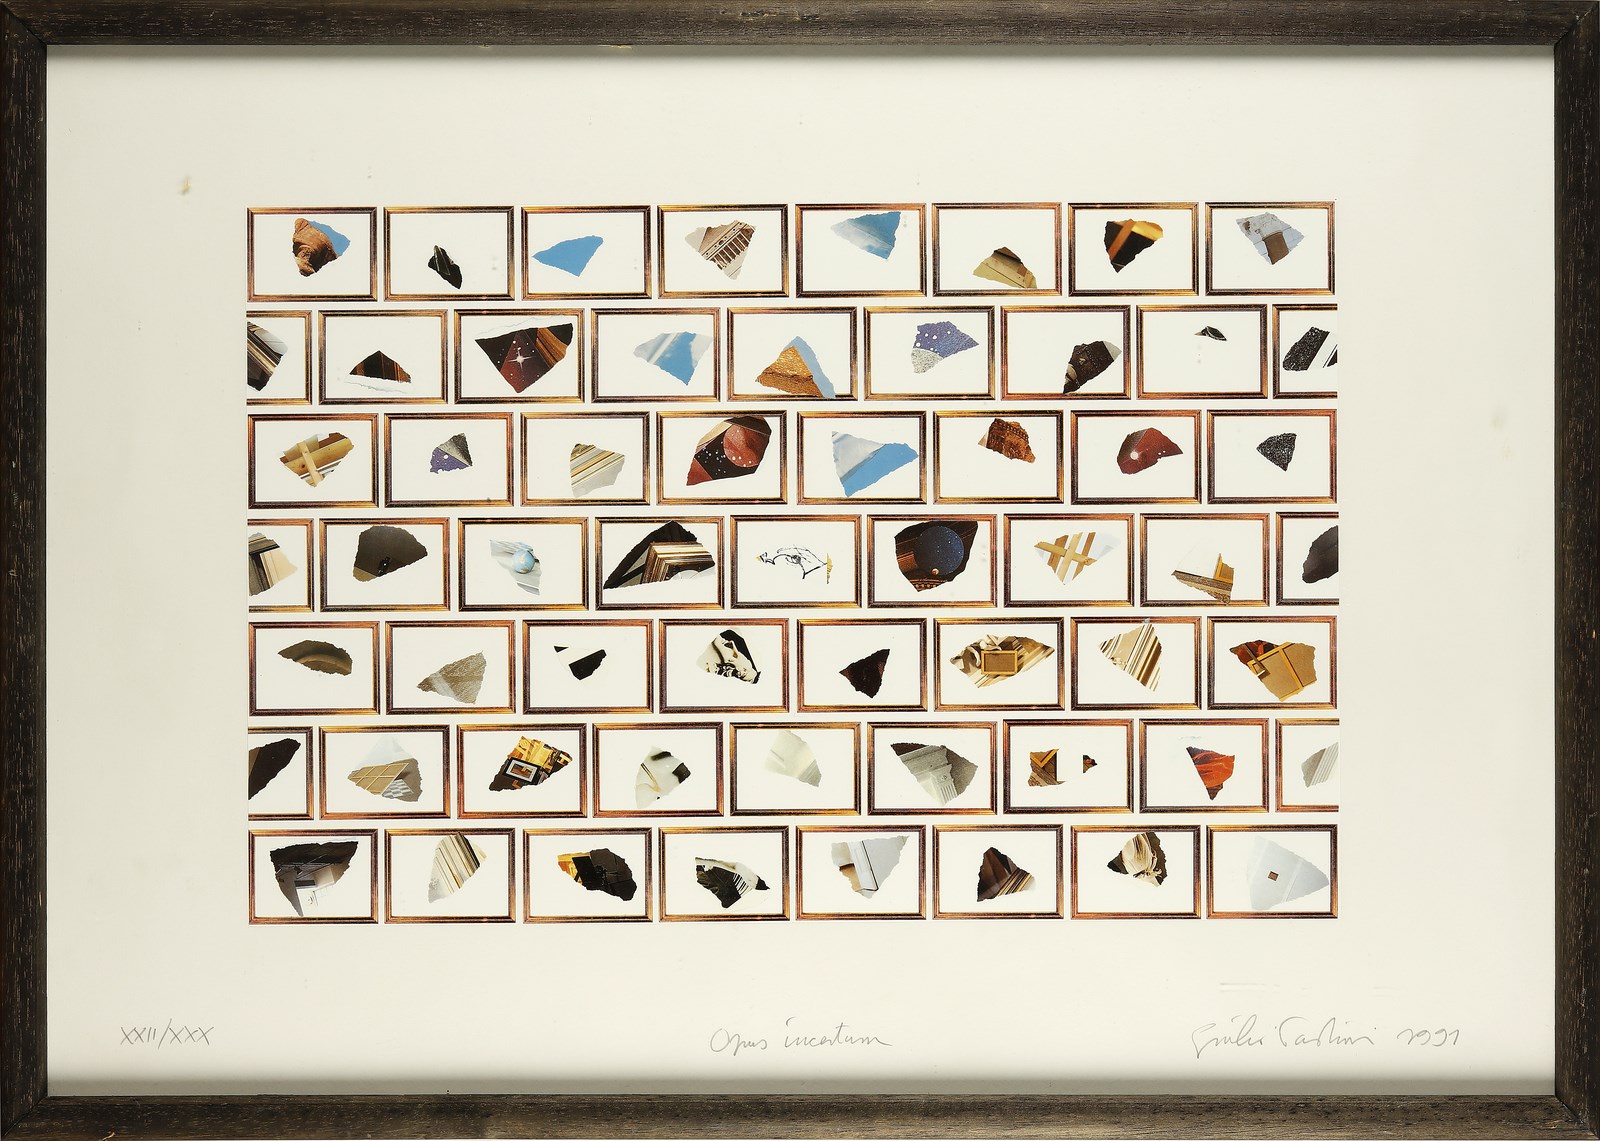 XXII/XXX
Opus incertum
Giulio Paolini 1991